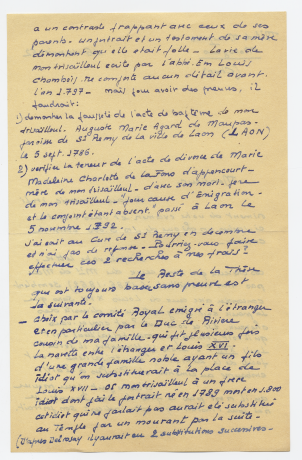 a un contraste frappant avec ceux de ses
parents. Un portrait et un testament de sa mère
démontrent qu'elle était folle - La vie de
mon trisaïeul écrite par l'abbé. Em Louis
Chambois ne compte aucun détail avant.
l'an 1797 - mais pour avoir des preuves, il
faudrait:
1) démontrer la fausseté de l'acte de baptême de mon
trisaïeul. Auguste Marie Agard de Maupas.
paroisse de St Remy de la ville de Laon (LAON)
le 5 sept. 1786.
2) vérifier la teneur de l'acte de divorce de Marie
Madeleine Charlotte de la Fons d'happencourt
mère de mon trisaïeul - d'avec son mari. père
de mon trisaïeul - pour cause d'émigration
et le conjoint étant absent. passé à Laon le
5 novembre 1792.
J'ai écrit au Curé de St Remy en décembre
et n'ai pas de réponse - Pourriez-vous faire
effectuer ces 2 recherches à mes frais?
Le Reste de la Thèse
qui est toujours base sans preuve est
la suivante.
- choix par le comité Royal émigré à l'étranger
et en particulier par le Duc de Rivière
cousin de ma famille - qui fit plusieurs fois
la navette entre l'étranger et Louis XVI -
d'une grande famille noble ayant un fils
idiot qu'on substituerait à la place de
Louis XVII - or mon trisaïeul a un frère
idiot dont j'ai le portrait né en 1789 mort en 1800
cet idiot qui ne parlait pas aurait été substitué
au Temple par un mourant par la suite -
(D'après il y aurait eu 2 substitutions successives -